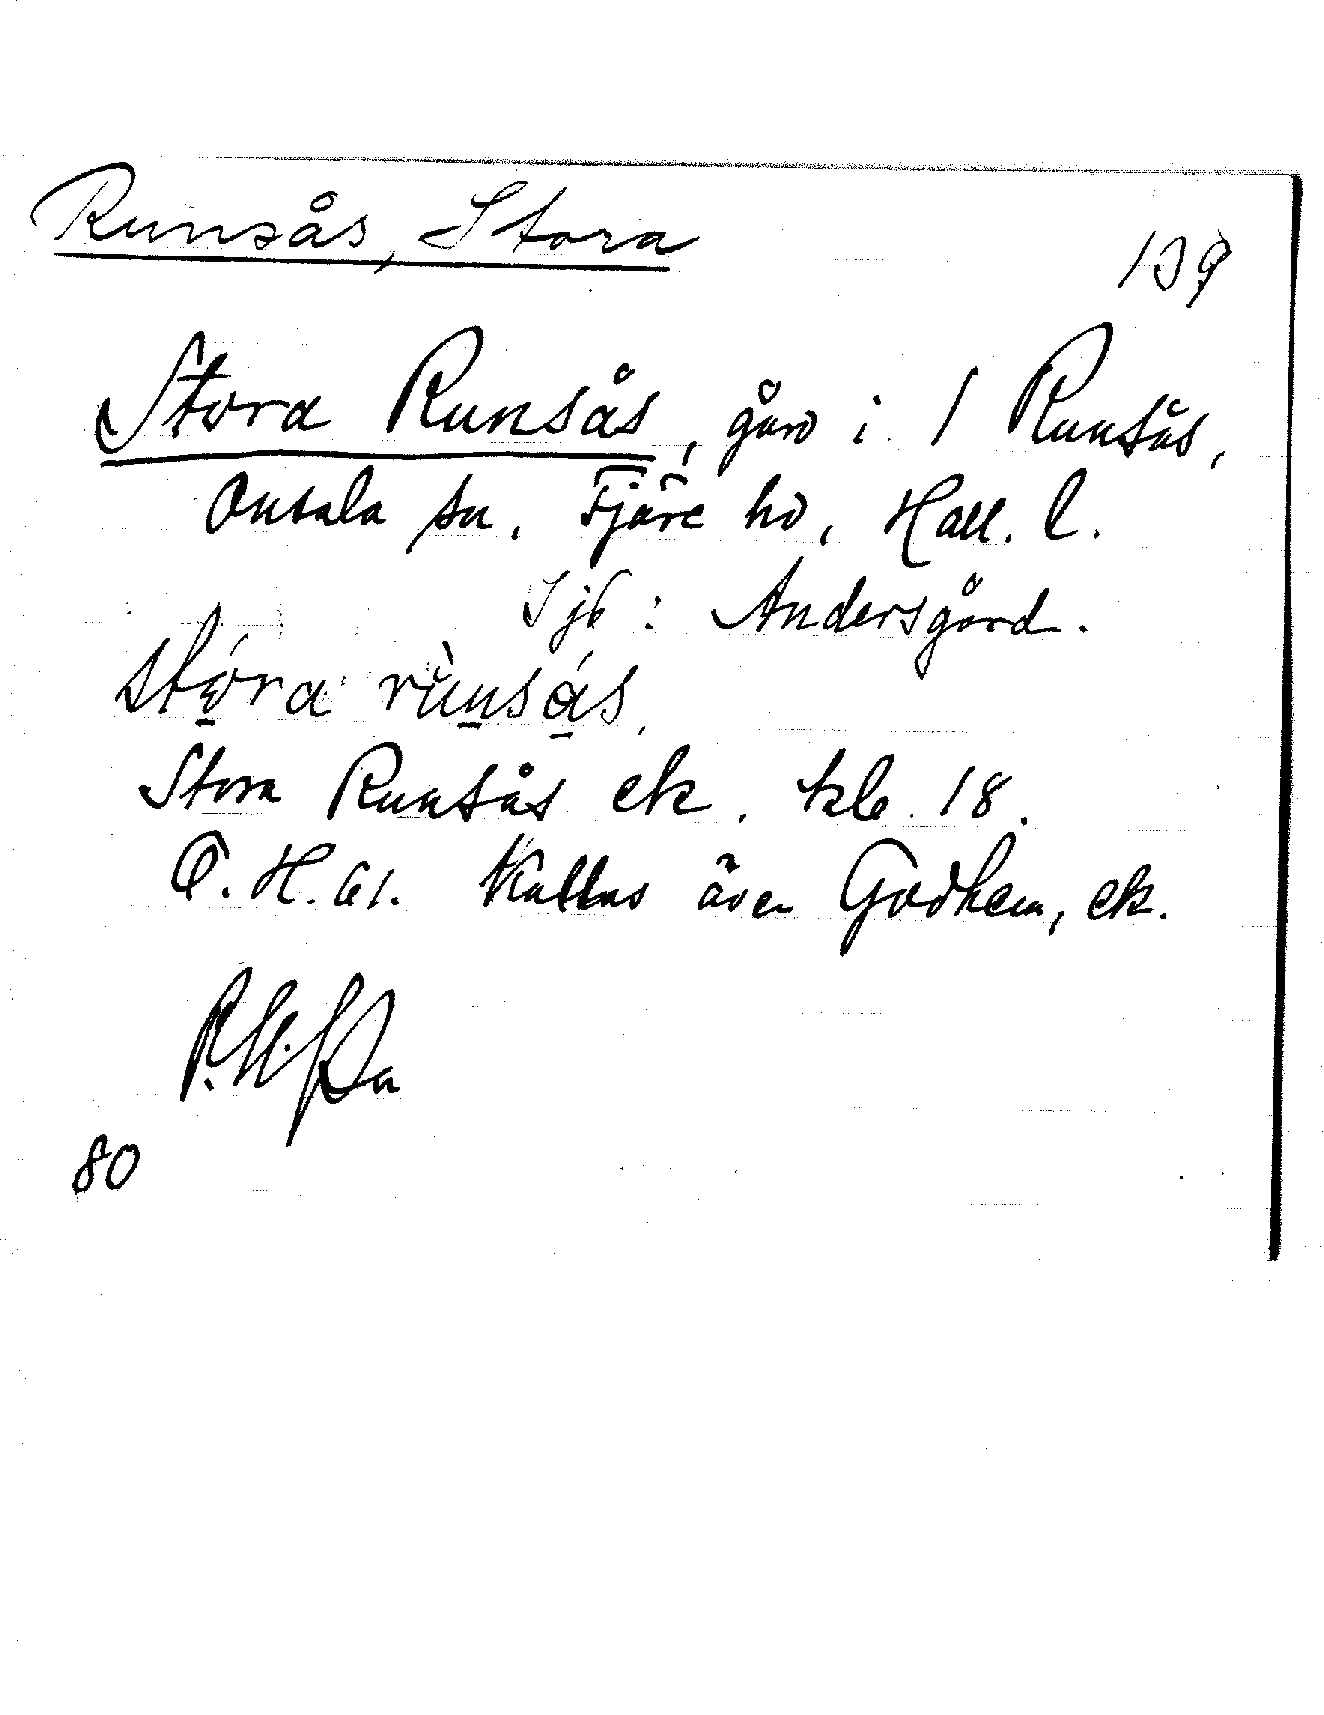 Runsås, Stora
139
Stora Runsås, gård i 1 Runsås,
Onsala sn, Fjäre hd, Hall. l.
Sjb: Andersgård.
stóra rùnsás,
Stora Runsås ek. kb. 18.
O.H. 61. Kallas även Godhem, ek.
80